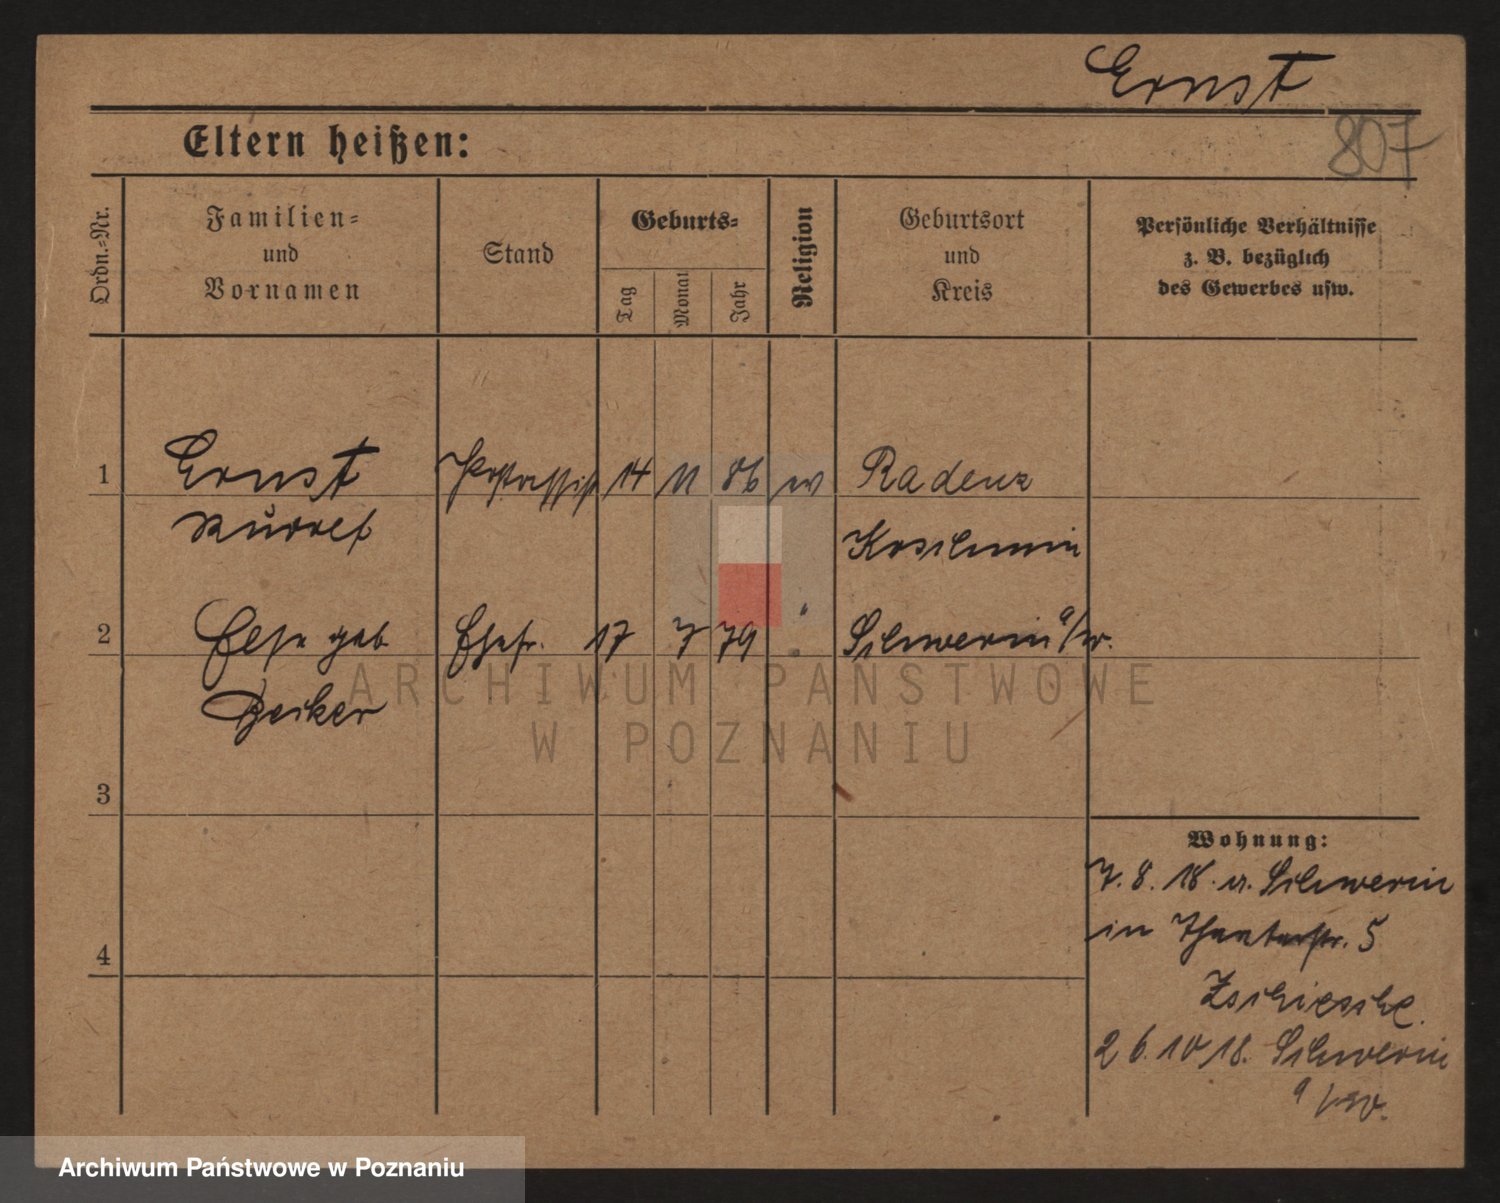 Ernst
807
Eltern heißen:
Ordn.-Nr.
Familien-
und
Vornamen
Stand
Geburts-
Tag
Monat
Jahr
Religion
Geburtsort
und
Kreis
Persönliche Verhältnisse
z. B. bezüglich
des Gewerbes usw.
1
Ernst
14 11 86
Radenz
Koschmin
2
Else geb
Ehefr. 17 7 79
Schwerin a/W.
Becker
ARCHIWUM PAŃSTWOWE
W POZNANIU
3
Wohnung:
7. 8. 18. v. Schwerin
in Theaterstr. 5
4
26.10 18. Schwerin
a/W.
Archiwum Państwowe w Poznaniu